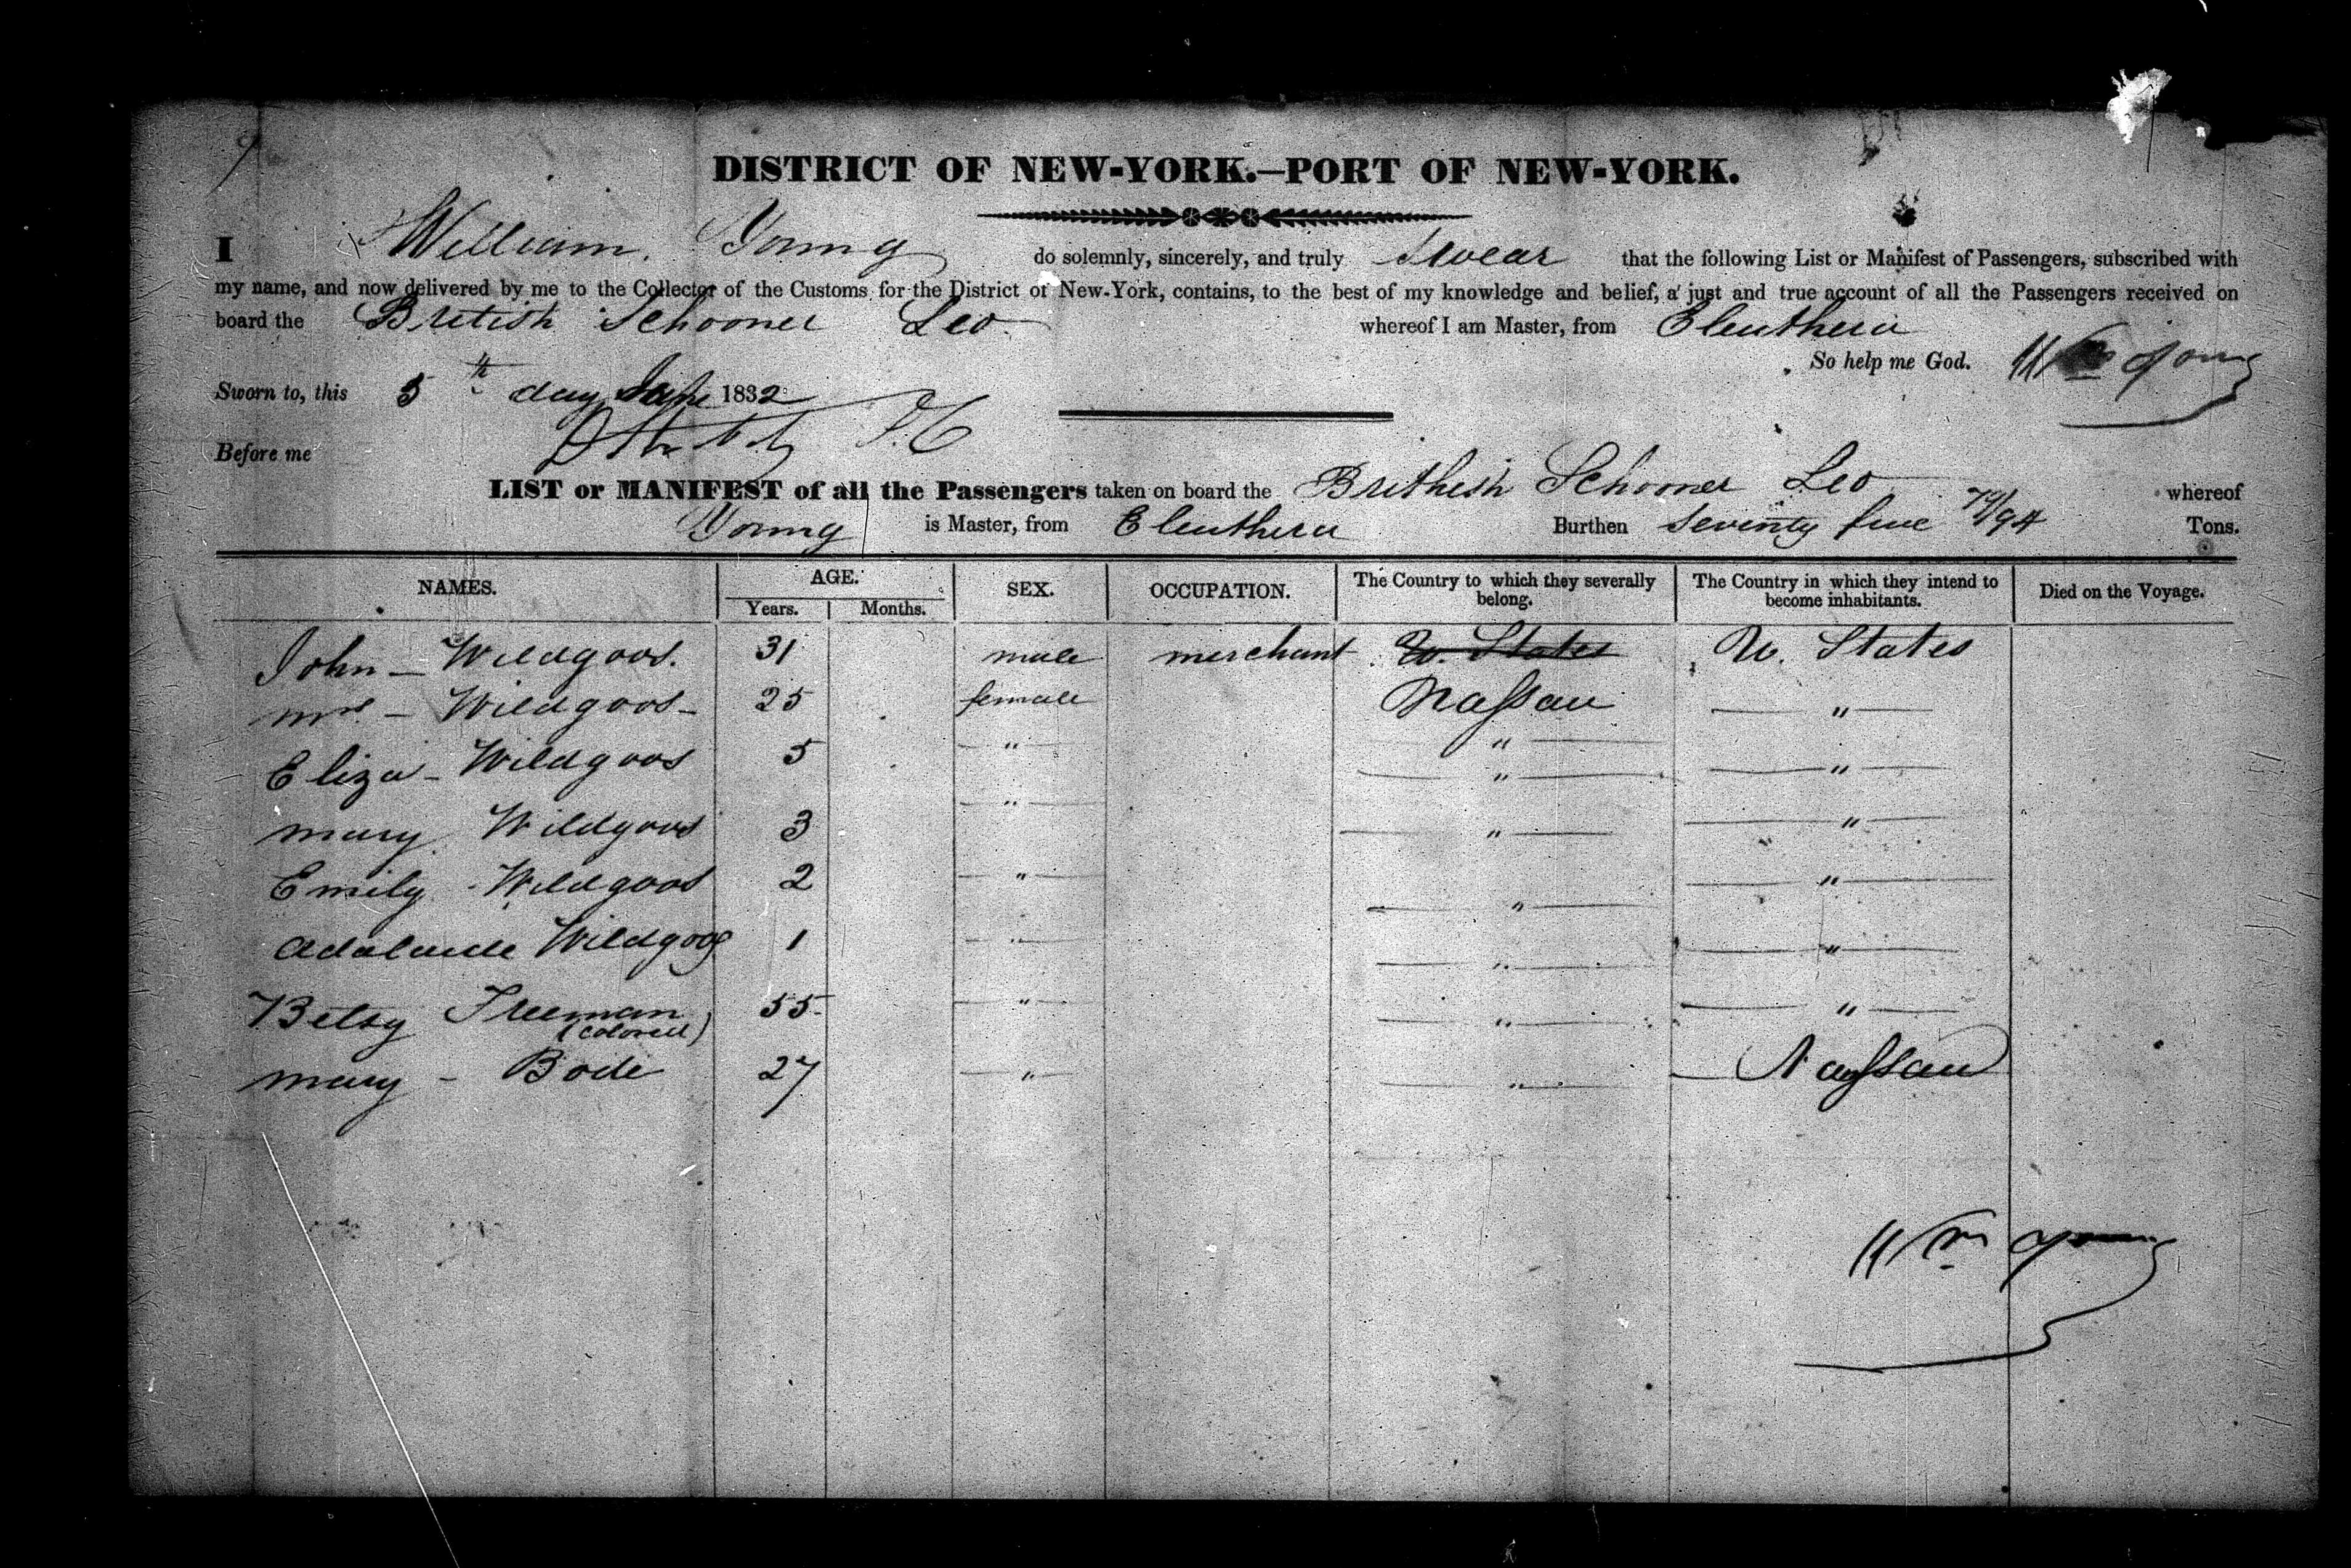 DISTRICT OF NEW-YORK.—PORT OF NEW-YORK.
I William Young do solemnly, sincerely, and truly Swear that the following List or Manifest of Passengers, subscribed with
my name, and now delivered by me to the Collector of the Customs for the District of New-York, contains, to the best of my knowledge and belief, a just and true account of all the Passengers received on
board the British Schooner Leo whereof I am Master, from Eleuthera
So help me God. Wm Young
Sworn to, this 5th day June 1832
Before me
LIST or MANIFEST of all the Passengers taken on board the Brithish Schooner Leo whereof
Young is Master, from Eleuthera Burthen Seventy five /94 Tons.
NAMES. AGE. SEX. OCCUPATION. The Country to which they severally belong. The Country in which they intend to become inhabitants. Died on the Voyage.
Years. Months.
John — Wildgoos. 31 male merchant U. States U. States
mrs — Wildgoos — 25 female Nassau — " —
Eliza — Wildgoos 5 — " — — " — — " —
mary Wildgoos 3 — " — — " — — " —
Emily Wildgoos 2 — " — — " — — " —
Adalaide Wildgoos 1 — " — — " — — " —
Betsy Freeman (colored) 55 — " — — " — — " —
mary — Bode 27 — " — — " — Naussau
Wm Young